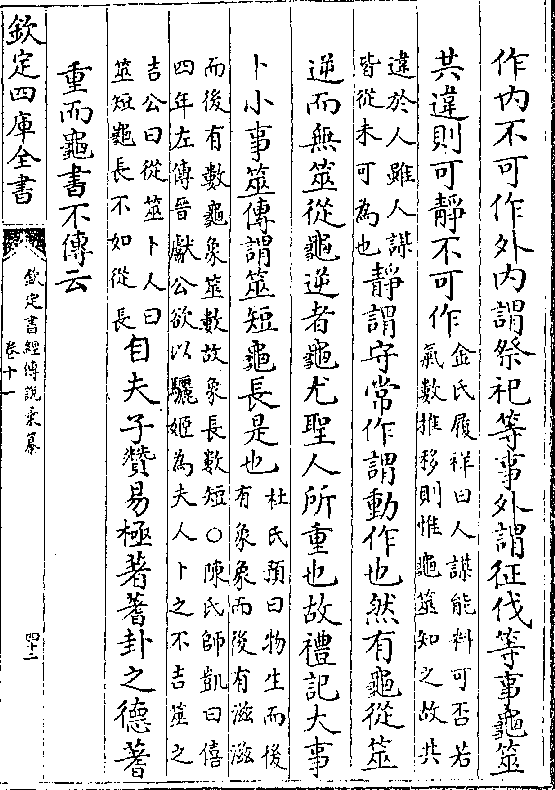 作内不可作外内謂祭祀等事外謂征伐等事龜筮
共違則可靜不可作金氏履祥曰人謀能料可否若
氣數推移則惟龜筮知之故共
違於人雖人謀
皆從未可為也靜謂守常作謂動作也然有龜從筮
逆而無筮從龜逆者龜尤聖人所重也故禮記大事
卜小事筮傳謂筮短龜長是也杜氏預曰物生而後
有象象而後有滋滋
而後有數龜象筮數故象長數短○陳氏師凱曰僖
四年左傳晉獻公欲以驪姬為夫人卜之不吉筮之
吉公曰從筮卜人曰
筮短龜長不如從長自夫子贊易極著蓍卦之德蓍
重而龜書不傳云
欽定四庫全書
欽定書經傳說彙纂
卷十一
四十二